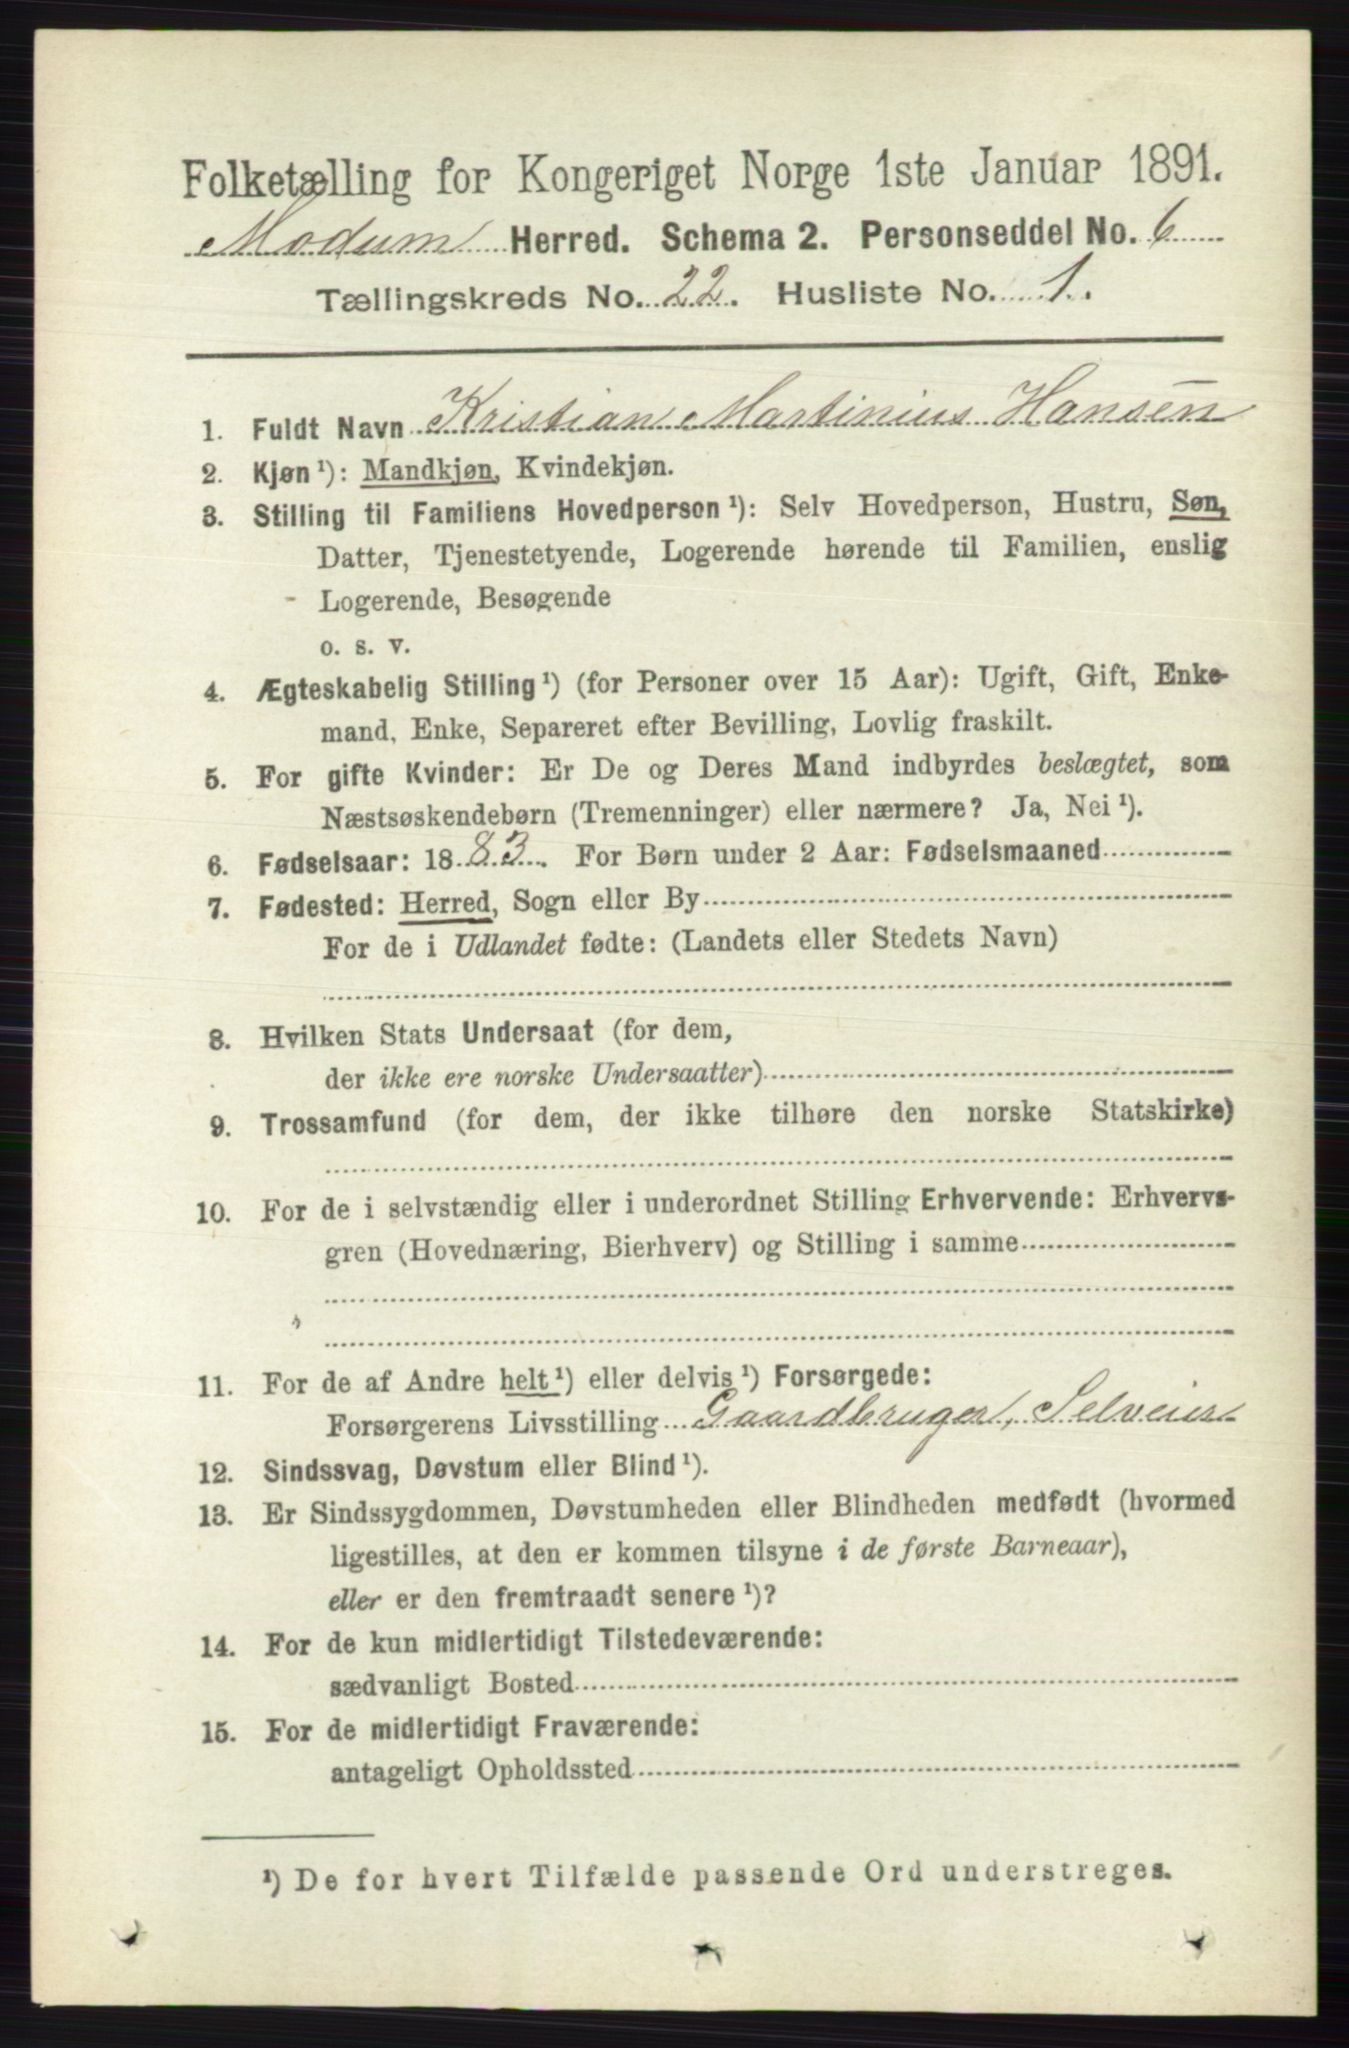 Folketælling for Kongeriget Norge 1ste Januar 1891.
Modum Herred. Schema 2. Personseddel No. 6
Tællingskreds No. 22. Husliste No. 1.
1. Fuldt Navn Kristian Martinius Hansen
2. Kjøn ¹): Mandkjøn, Kvindekjøn.
3. Stilling til Familiens Hovedperson ¹): Selv Hovedperson, Hustru, Søn,
Datter, Tjenestetyende, Logerende hørende til Familien, enslig
Logerende, Besøgende
o. s. v.
4. Ægteskabelig Stilling ¹) (for Personer over 15 Aar): Ugift, Gift, Enke-
mand, Enke, Separeret efter Bevilling, Lovlig fraskilt.
5. For gifte Kvinder: Er De og Deres Mand indbyrdes beslægtet, som
Næstsøskendebørn (Tremenninger) eller nærmere? Ja, Nei ¹).
6. Fødselsaar: 1883. For Børn under 2 Aar: Fødselsmaaned
7. Fødested: Herred, Sogn eller By
For de i Udlandet fødte: (Landets eller Stedets Navn)
8. Hvilken Stats Undersaat (for dem,
der ikke ere norske Undersaatter)
9. Trossamfund (for dem, der ikke tilhøre den norske Statskirke)
10. For de i selvstændig eller i underordnet Stilling Erhvervende: Erhvervs-
gren (Hovednæring, Bierhverv) og Stilling i samme
11. For de af Andre helt ¹) eller delvis ¹) Forsørgede:
Forsørgerens Livsstilling Gaardbruger, Selveier
12. Sindssvag, Døvstum eller Blind ¹).
13. Er Sindssygdommen, Døvstumheden eller Blindheden medfødt (hvormed
ligestilles, at den er kommen tilsyne i de første Barneaar),
eller er den fremtraadt senere ¹)?
14. For de kun midlertidigt Tilstedeværende:
sædvanligt Bosted
15. For de midlertidigt Fraværende:
antageligt Opholdssted
¹) De for hvert Tilfælde passende Ord understreges.